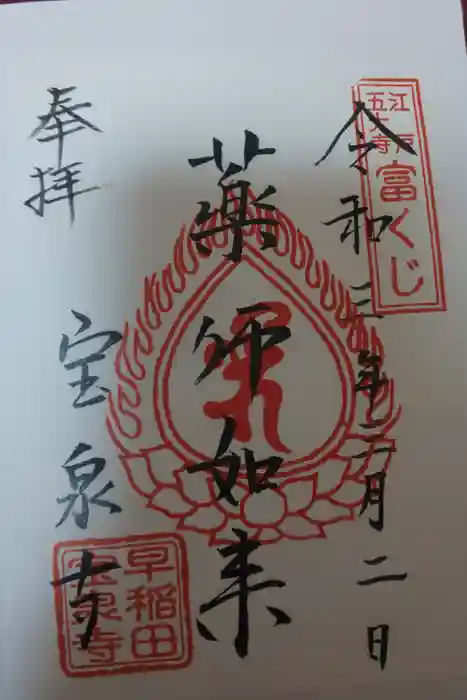 江戸
五大寺
富くじ
令和三年二月二日
薬師如来
奉拝
宝泉寺
早稲田
宝泉寺